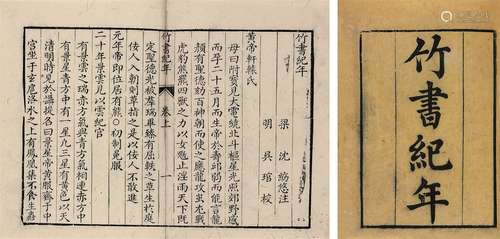 竹書紀年
梁 沈約注
明 吳琯校
黃帝軒轅氏
母曰附寶見大電繞北斗樞星光照郊野感
而孕二十五月而生帝於壽邱弱而能言龍
顏有聖德劾百神朝而使之應龍攻蚩尤戰
虎豹熊羆四獸之力以女魃止淫雨天下既
竹書紀年 卷上 一
定聖德光被群瑞畢臻有屈軼之草生於庭
佞人入朝則草指之是以佞人不敢進
元年帝即位居有熊初制冕服
二十年景雲見以雲紀官
有景雲之瑞赤方氣與青方氣相連赤方中
有星青方中有一星凡三星皆黃色以天
清明時見於攝提名曰景星帝黃服齋於中
宮坐于玄扈洛水之上有鳳凰集不食生
竹書紀年